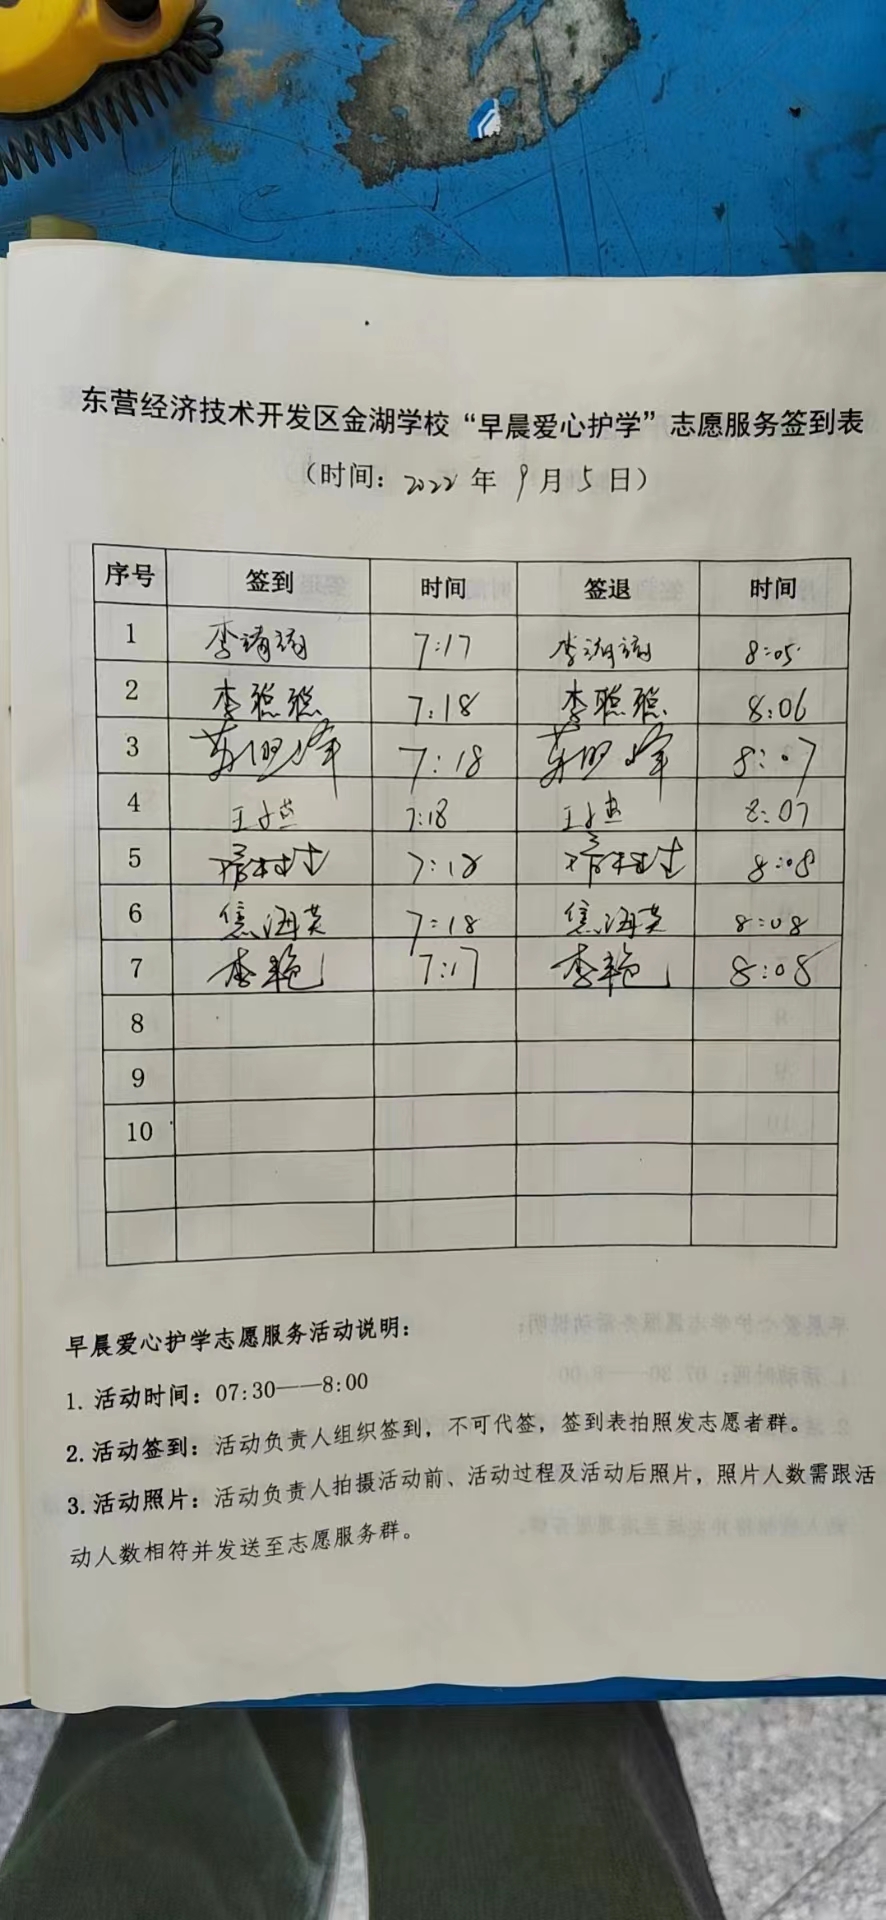 东营经济技术开发区金湖学校“早晨爱心护学”志愿服务签到表
（时间：2022年9月5日）
序号 签到 时间 签退 时间
1 李 7:17 李 8:05
2 李聪聪 7:18 李聪聪 8:06
3 7:18 8:07
4 王 7:18 王 8:07
5 7:18 8:08
6 焦海英 7:18 焦海英 8:08
7 李艳 7:17 李艳 8:08
8
9
10
早晨爱心护学志愿服务活动说明：
1. 活动时间：07:30——8:00
2. 活动签到：活动负责人组织签到，不可代签，签到表拍照发志愿者群。
3. 活动照片：活动负责人拍摄活动前、活动过程及活动后照片，照片人数需跟活
动人数相符并发送至志愿服务群。